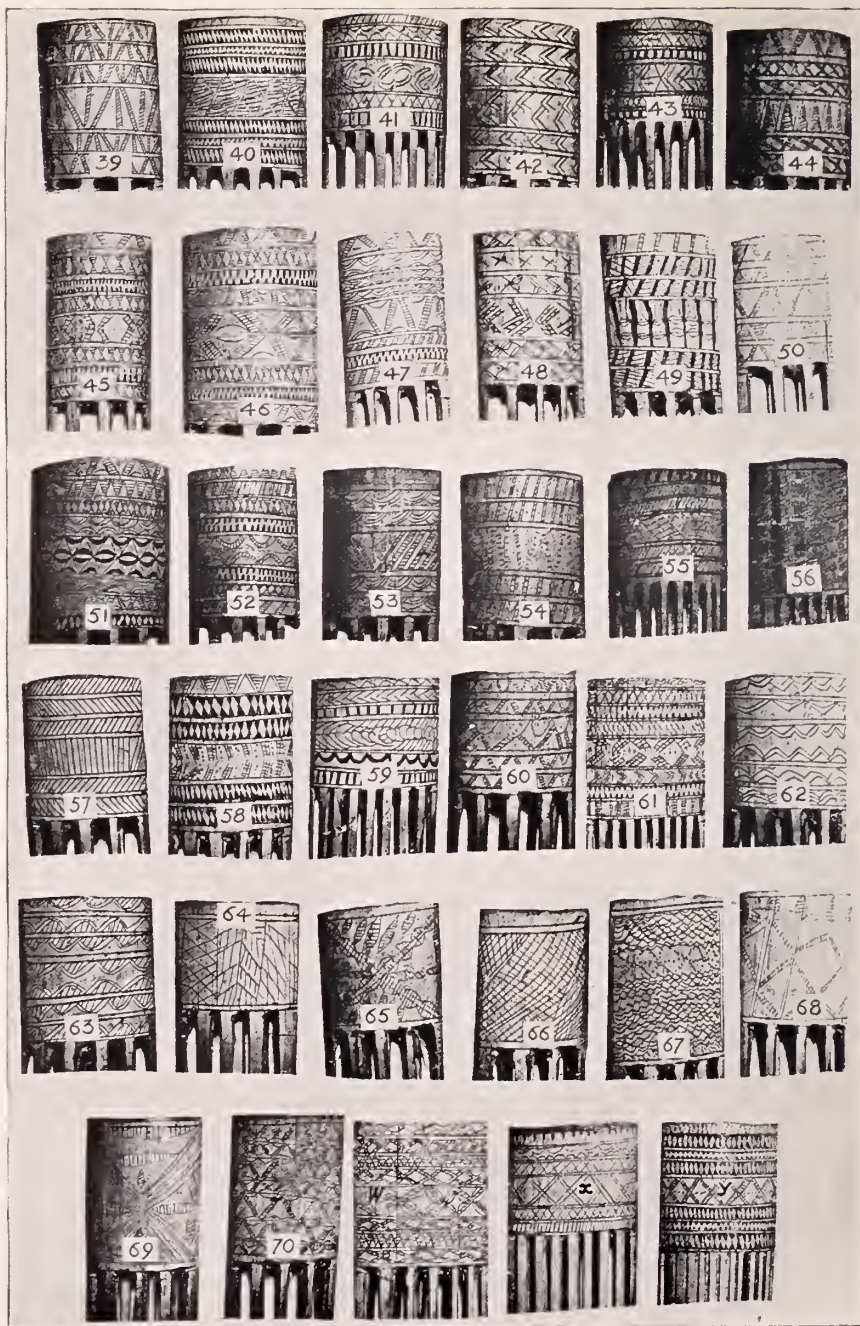 39 40 41 42 43 44
45 46 47 48 49 50
51 52 53 54 55 56
57 58 59 60 61 62
63 64 65 66 67 68
69 70 W x y